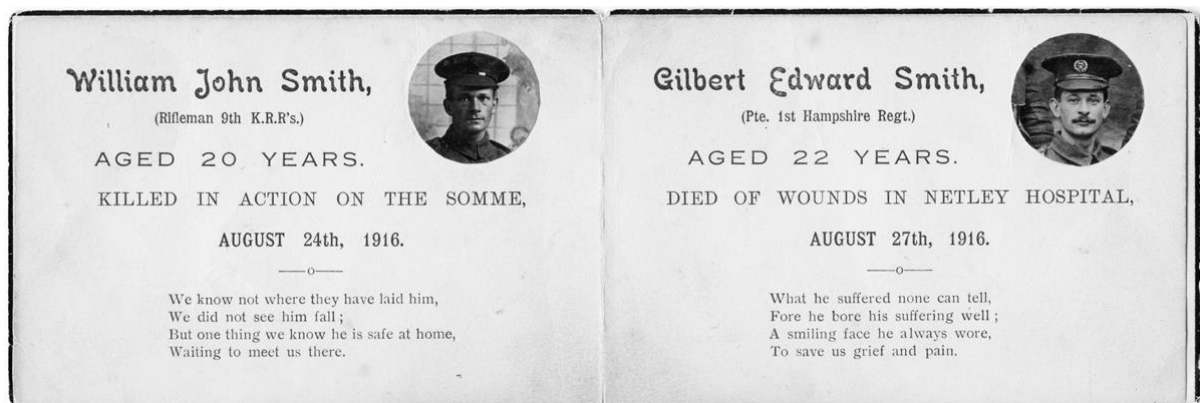 William John Smith,
(Rifleman 9th K.R.R's.)
AGED 20 YEARS.
KILLED IN ACTION ON THE SOMME,
AUGUST 24th, 1916.
We know not where they have laid him,
We did not see him fall ;
But one thing we know he is safe at home,
Waiting to meet us there.
Gilbert Edward Smith,
(Pte. 1st Hampshire Regt.)
AGED 22 YEARS.
DIED OF WOUNDS IN NETLEY HOSPITAL,
AUGUST 27th, 1916.
What he suffered none can tell,
Fore he bore his suffering well ;
A smiling face he always wore,
To save us grief and pain.